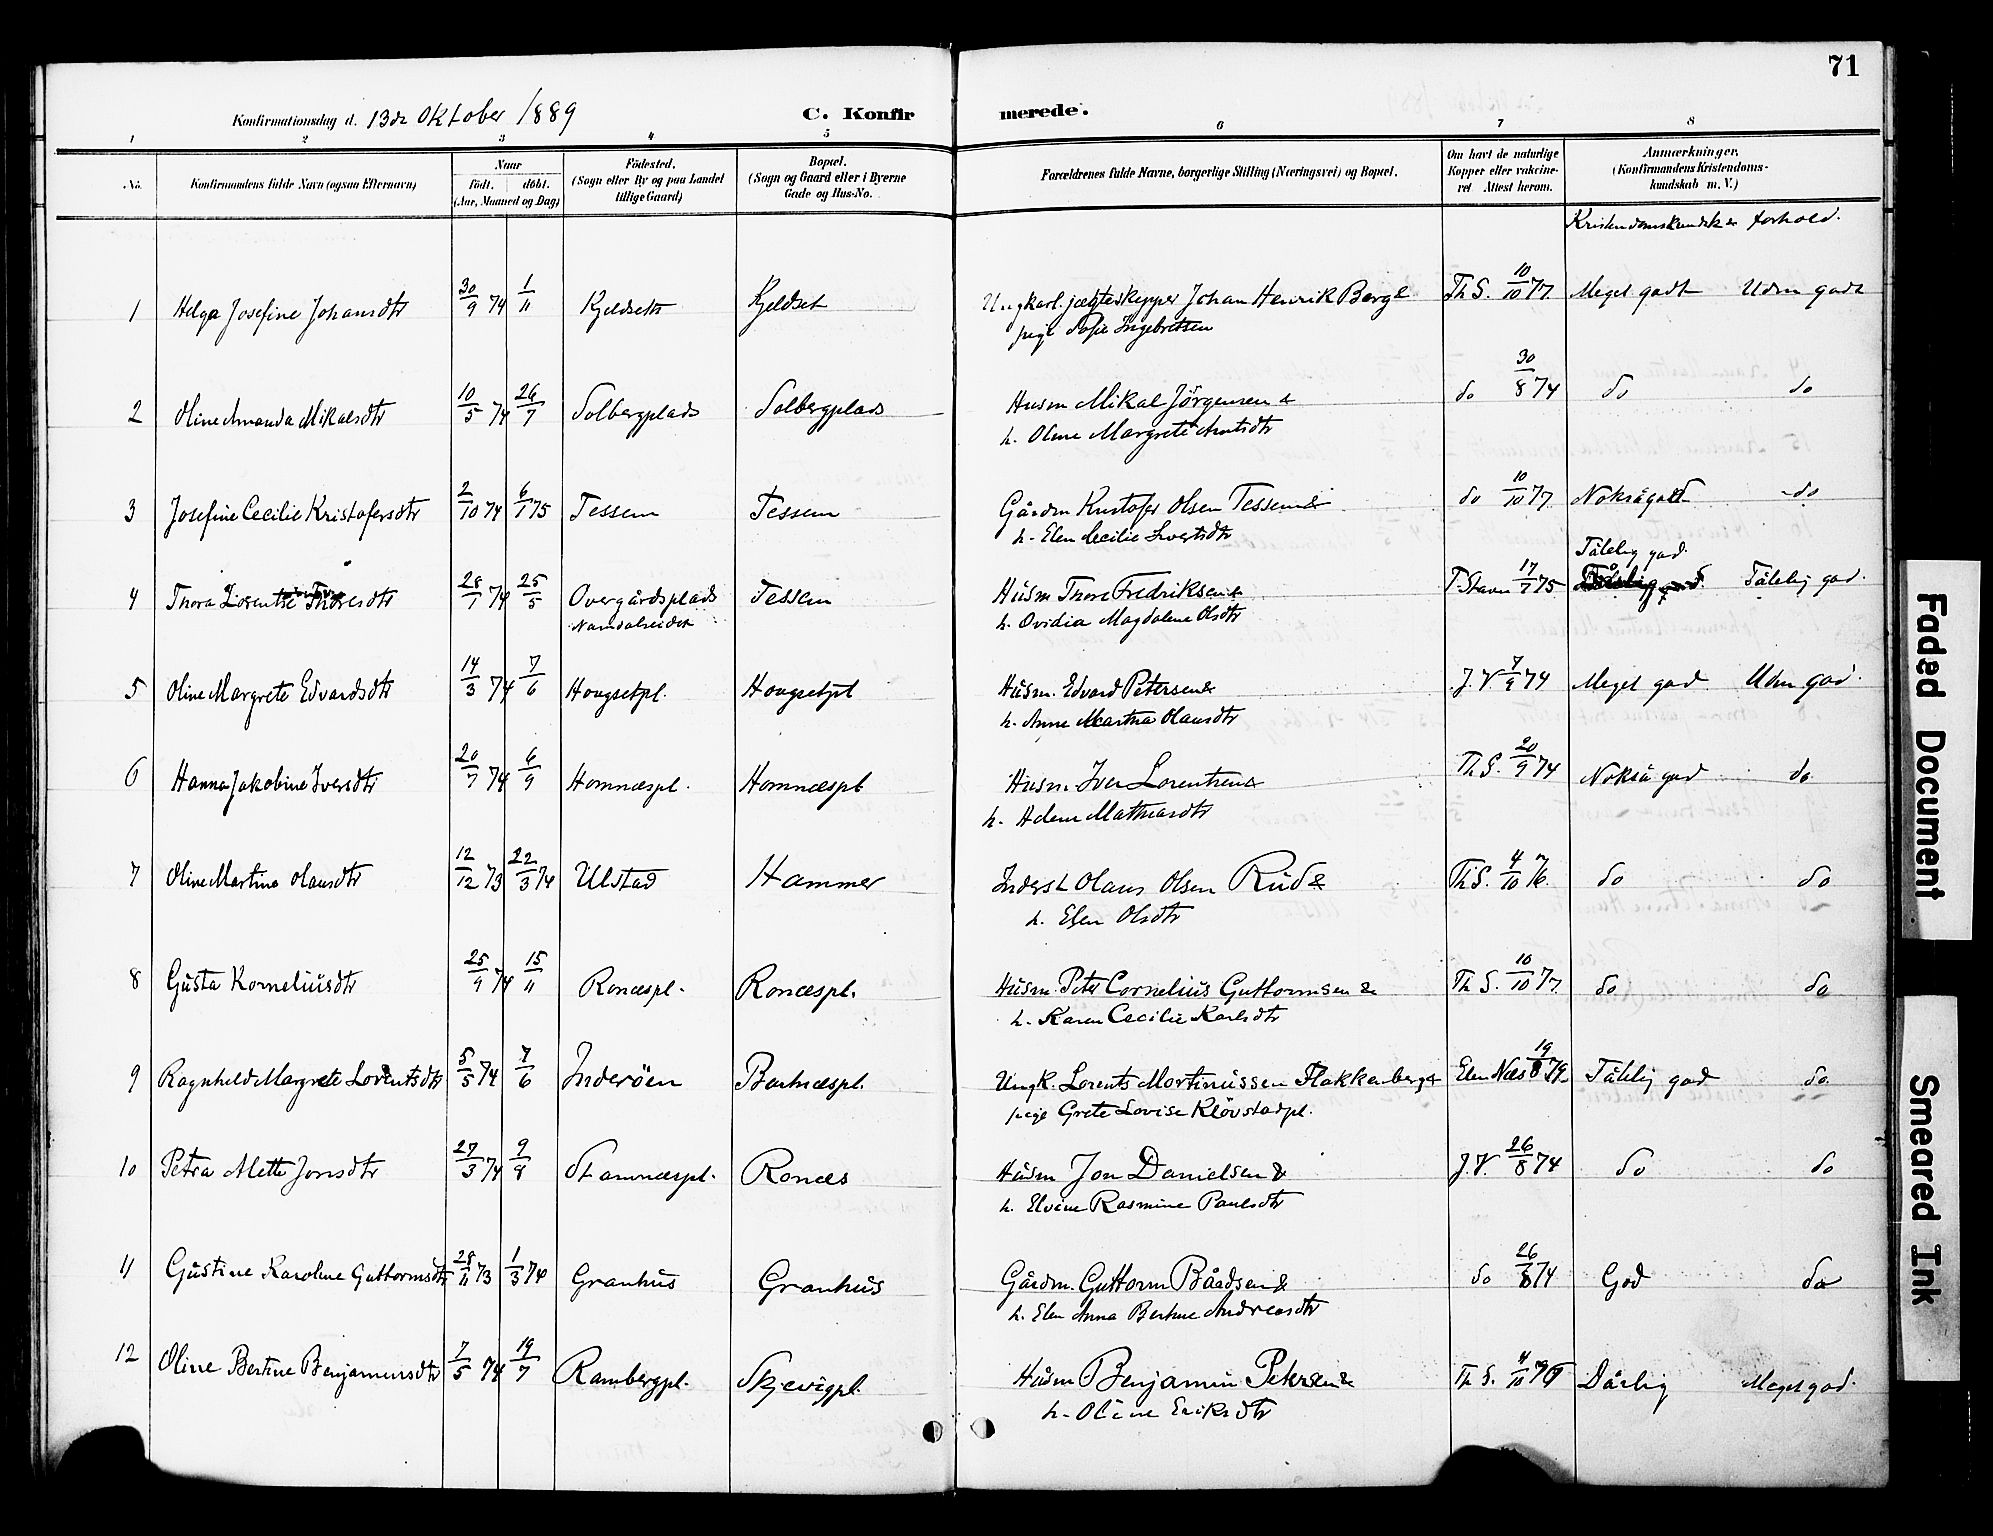 71
Konfirmationsdag d. 13de Oktober 1889 C. Konfirmerede.
1 2 3 4 5 6 7 8
No. Konfirmandens fulde Navn (ogsaa Efternavn) Naar født. døbt. (Aar, Maaned og Dag) Fødested. (Sogn eller By og paa Landet tillige Gaard) Bopæl. (Sogn og Gaard eller i Byerne Gade og Hus-No. Forældrenes fulde Navne, borgerlige Stilling (Næringsvei) og Bopæl. Om havt de naturlige Kopper eller vakcineret Attest herom. Anmærkninger. (Konfirmandens Kristendomskundskab m. V.)
Kristendomskundsk. forhold.
1 Helga Josefine Johansdtr 30/9 74 1/11 Kjeldseth Kjeldset Ungkarl. jægteskipper Johan Henrik Berg & Th. S. 10/10 77. Meget godt Udm godt
pige Sofie Ingebretsen
2 Oline Amanda Mikalsdtr 10/5 74 26/7 Solbergplads Solbergplads Husm Mikal Jörgensen & do 30/8 74 do do
h. Oline Margrete Arntsdtr
3 Josefine Cecilie Kristofersdtr 2/10 74 6/1 75 Tessem Tessem Gårdm Kristofer Olsen Tessem & do 10/10 77 Noksågod do
h. Elen Cecilie Sivertsdtr
4 Thora Lorentse Thoresdtr 28/1 74 25/5 Overgårdsplads Tessem Husm Thore Fredriksen & T. Stavn 17/7 75 Tålelig god. Tålelig god.
Namdalseidet h. Ovidia Magdalene Olsdtr
5 Oline Margrete Edvardsdtr 14/3 74 7/6 Hougsetpl. Hougsetpl Husm. Edvard Petersen & J. V. 7/9 74 Meget god Udm god.
h. Anne Martha Olausdtr
6 Hanna Jakobine Iversdtr 20/7 74 6/9 Homnæspl. Homnæspl Husm. Iver Lorentsen & Th. S. 20/9 74 Nokså god do
h. Helene Mathiasdtr
7 Oline Martina Olausdtr 12/12 73 22/3 74 Ulstad Hammer Inderst Olaus Olsen Rud & Th S. 4/10 76. do do
h. Elen Olsdtr
8 Gusta Korneliusdtr 25/9 74 15/11 Ronæspl. Ronæspl. Husm. Peter Cornelius Guttormsen & Th S. 10/10 77. do do
h. Karen Cecilie Karlsdtr
9 Ragnhild Margrete Lorentsdtr 5/5 74 7/6 Inderöen Bartnæspl. Ungk. Lorents Martinussen Flakkenberg & Elen Næs 19/8 79 Tålelig god do
pige Grete Lovise Klövstadpl.
10 Petra Alette Jonsdtr 27/3 74 9/8 Stamnæspl. Ronæs Husm Jon Danielsen & J. V. 26/8 74 do do
h. Elvine Rasmine Paulsdtr
11 Gustine Karoline Guttormsdtr 28/11 73 1/3 74 Granhus Granhus Gårdm. Guttorm Bårdsen & do 26/8 74 God do
h. Elen Anna Bertine Andreasdtr
12 Oline Bertine Benjaminsdtr 7/5 74 19/7 Rambergpl. Skjevigpl. Husm Benjamin Petersen & Th S. 4/10 76 Dårlig Meget god.
h. Oline Eriksdtr
Faded Document
Smeared Ink